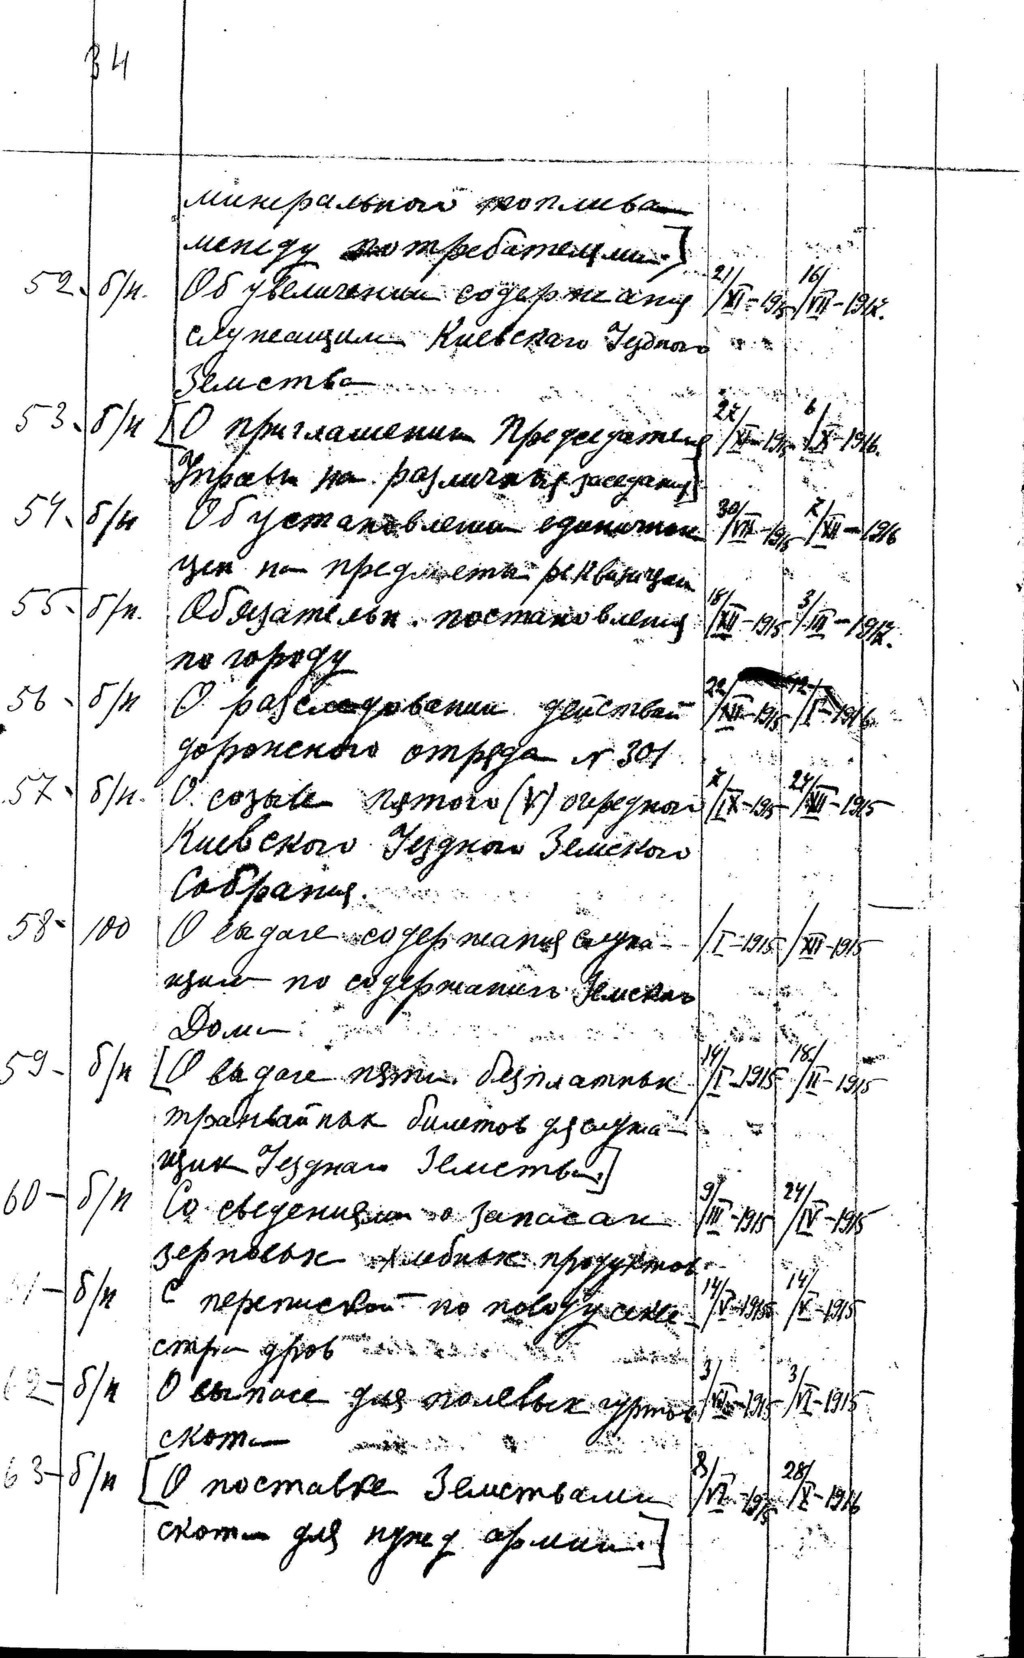 34
минерального топлива
между потребателями.]
52. б/н. Об увеличении содержания 21/XI-1915 16/VII-1917.
служащим Киевскаго Уездного
Земства
53. б/н [О приглашении Председателя 27/XI-1915 6/IX-1916.
Управы на различныя заседания]
54. б/н Об установлении единичных 30/VII-1915 7/XII-1916
цен на предметы реквизиции
55. б/н. Обязательн. постановления 18/XII-1915 3/III-1917.
по городу
56. б/н О расследовании действий 22/XII-1915 12/I-1916
дорожного отряда N 301
57. б/н. О созыве пятого (V) очередного 7/IX-1915 24/XII-1915
Киевского Уездного Земского
Собрания.
58. 100 О выдаче содержания служа- /I-1915 /XII-1915
щим по содержанию Земского
Дома
59. б/н [О выдаче пяти безплатных 14/I-1915 18/II-1915
трамвайных билетов для служа-
щих Уезднаго Земства.]
60- б/н Со сведениями о запасах 9/III-1915 24/IV-1915
зерновых хлебных продуктов
61- б/н С перепиской по поводу секве- 14/V-1915 14/V-1915
стра дров
62- б/н О выпасе для полевых гуртов 3/VI-1915 3/VI-1915
скота
63- б/н [О поставке Земствами 8/VI-1915 28/X-1916
скота для нужд армии.]